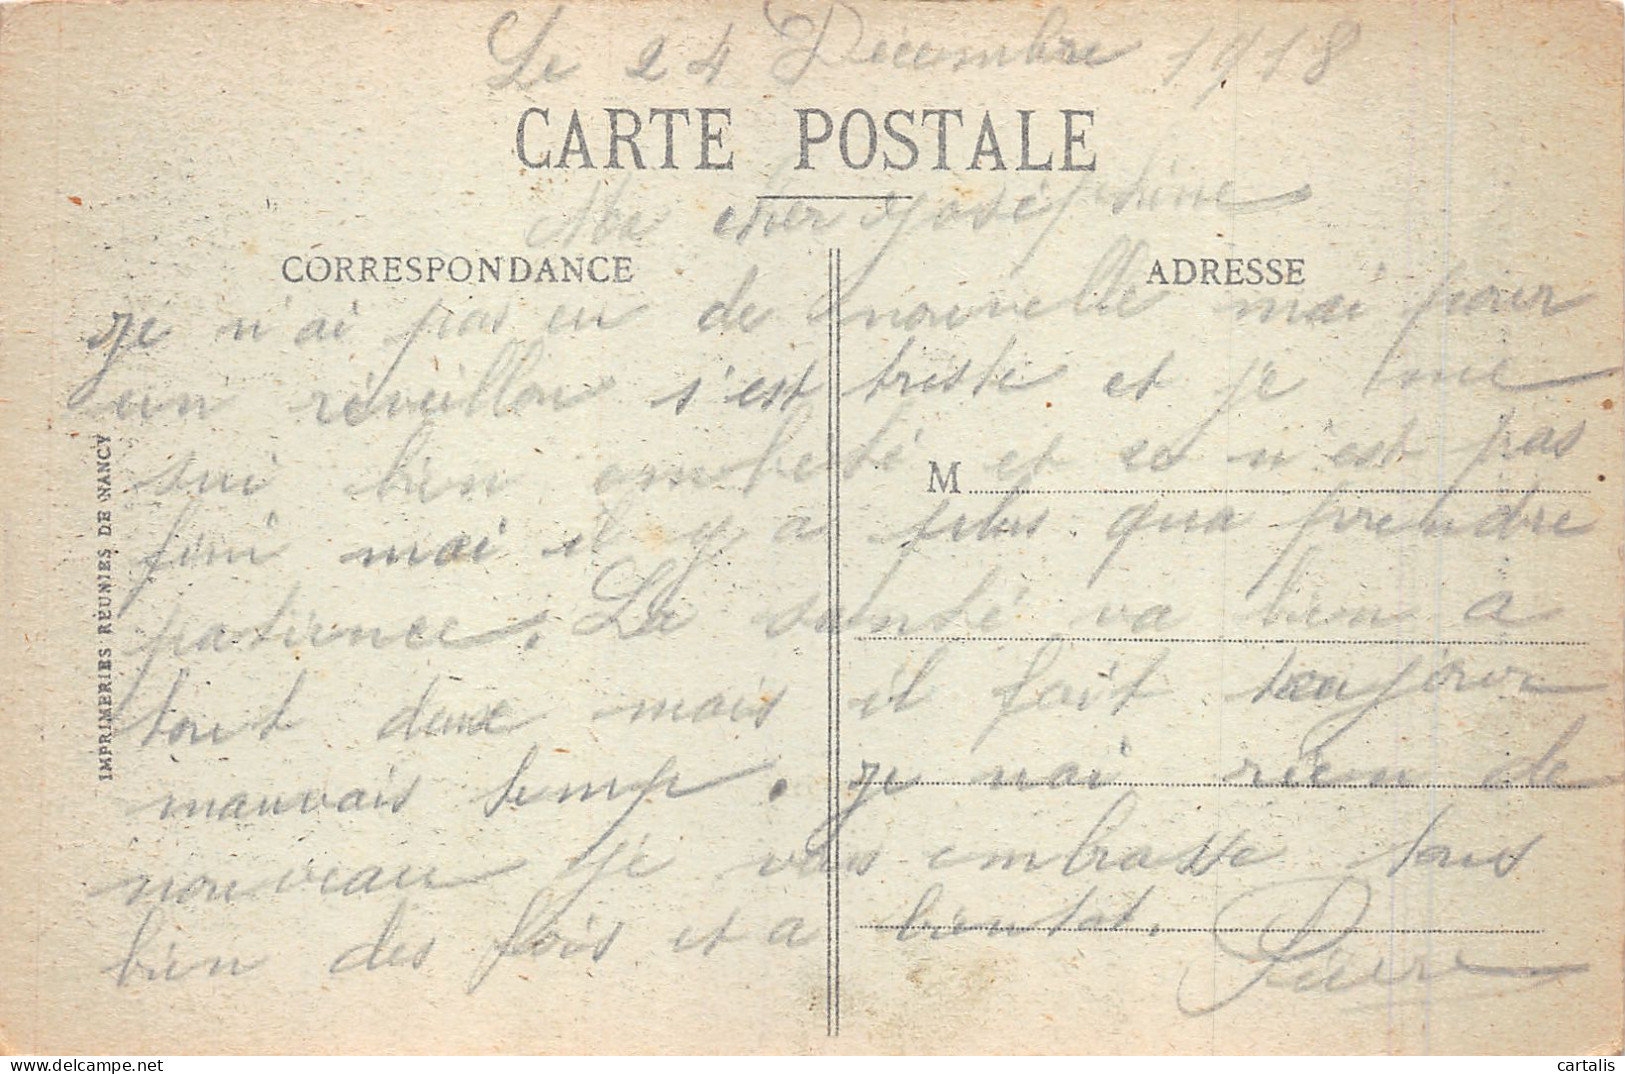 Le 24 Décembre 1918
CARTE POSTALE
Ma cher Joséphine
CORRESPONDANCE
ADRESSE
je n'ai pas eu de nouvelle mai pour
un réveillon s'est triste et je me
sui bien embeté et se n'est pas
M
fini mai il y a plus qua prendre
patience. La santé va bien a
tout deux mais il fait toujour
mauvais temp. je nai rien de
nouveau je vous embrasse tous
bien des fois et a bientot.
Pierre
IMPRIMERIES REUNIES DE NANCY
cartalis